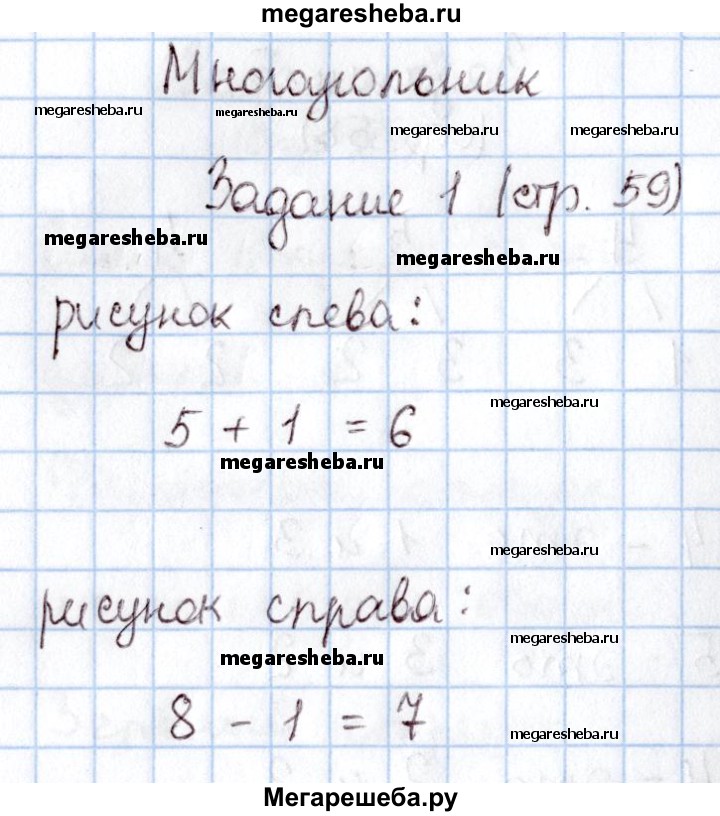 megaresheba.ru
Многоугольник
megaresheba.ru megaresheba.ru
megaresheba.ru megaresheba.ru
Задание 1 (стр. 59)
megaresheba.ru
megaresheba.ru
рисунок слева:
megaresheba.ru
5 + 1 = 6
megaresheba.ru
megaresheba.ru
рисунок справа:
megaresheba.ru
megaresheba.ru
8 - 1 = 7
megaresheba.ru
Мегарешеба.ру